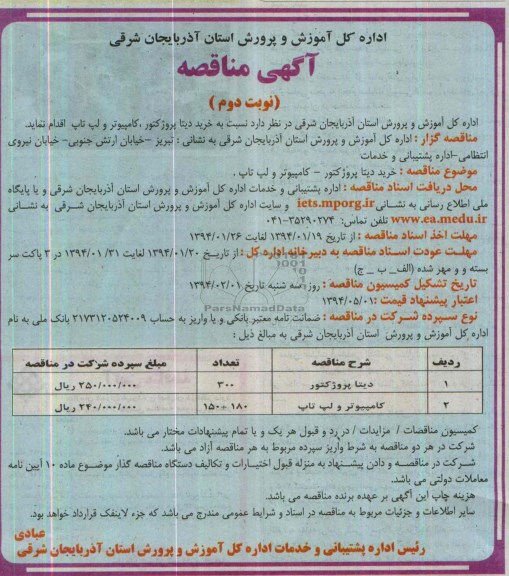 اداره کل آموزش و پرورش استان آذربایجان شرقی
آگهی مناقصه
(نوبت دوم )
اداره کل آموزش و پرورش استان آذربایجان شرقی در نظر دارد نسبت به خرید دیتا پروژکتور ،کامپیوتر و لپ تاپ اقدام نماید.
مناقصه گزار : اداره کل آموزش و پرورش استان آذربایجان شرقی به نشانی : تبریز –خیابان ارتش جنوبی- خیابان نیروی
انتظامی-اداره پشتیبانی و خدمات
موضوع مناقصه : خرید دیتا پروژکتور – کامپیوتر و لپ تاپ .
محل دریافت اسناد مناقصه : اداره پشتیبانی و خدمات اداره کل آموزش و پرورش استان آذربایجان شرقی و یا پایگاه
ملی اطلاع رسانی به نشانی iets.mporg.ir و سایت اداره کل آموزش و پرورش استان آذربایجان شرقی به نشانی
www.ea.medu.ir تلفن تماس: ۳۵۲۹۰۲۷۴-۰۴۱
مهلت اخذ اسناد مناقصه : از تاریخ ۱۳۹۴/۰۱/۱۹ لغایت ۱۳۹۴/۰۱/۲۶
مهلت عودت اسناد مناقصه به دبیرخانه اداره کل : از تاریخ ۱۳۹۴/۰۱/۲۰ لغایت ۱۳۹۴/۰۱/۳۱ در ۳ پاکت سر
بسته و و مهر شده (الف_ ب _ ج)
تاریخ تشکیل کمیسیون مناقصه : روز سه شنبه تاریخ ۱۳۹۴/۰۲/۰۱
اعتبار پیشنهاد قیمت : ۱۳۹۴/۰۵/۰۱
نوع سپرده شرکت در مناقصه : ضمانت نامه معتبر بانکی و یا واریز به حساب ۲۱۷۳۱۲۰۵۲۴۰۰۹ بانک ملی به نام
اداره کل آموزش و پرورش استان آذربایجان شرقی به مبالغ ذیل :
ردیف شرح مناقصه تعداد مبلغ سپرده شرکت در مناقصه
۱ دیتا پروژکتور ۳۰۰ ۲۵۰/۰۰۰/۰۰۰ ریال
۲ کامپیوتر و لپ تاپ ۱۸۰ +۱۵۰ ۲۴۰/۰۰۰/۰۰۰ ریال
کمیسیون مناقصات / مزایدات / در رد و قبول هر یک و یا تمام پیشنهادات مختار می باشد.
شرکت در هر دو مناقصه به شرط واریز سپرده مربوط به هر مناقصه آزاد می باشد.
شرکت در مناقصه و دادن پیشنهاد به منزله قبول اختیارات و تکالیف دستگاه مناقصه گذار موضوع ماده ۱۰ آیین نامه
معاملات دولتی می باشد.
هزینه چاپ این آگهی بر عهده برنده مناقصه می باشد.
سایر اطلاعات و جزئیات مربوط به مناقصه در اسناد و شرایط عمومی مندرج می باشد که جزء لاینفک قرارداد خواهد بود.
عبادی
رئیس اداره پشتیبانی و خدمات اداره کل آموزش و پرورش استان آذربایجان شرقی
ParsNamadData